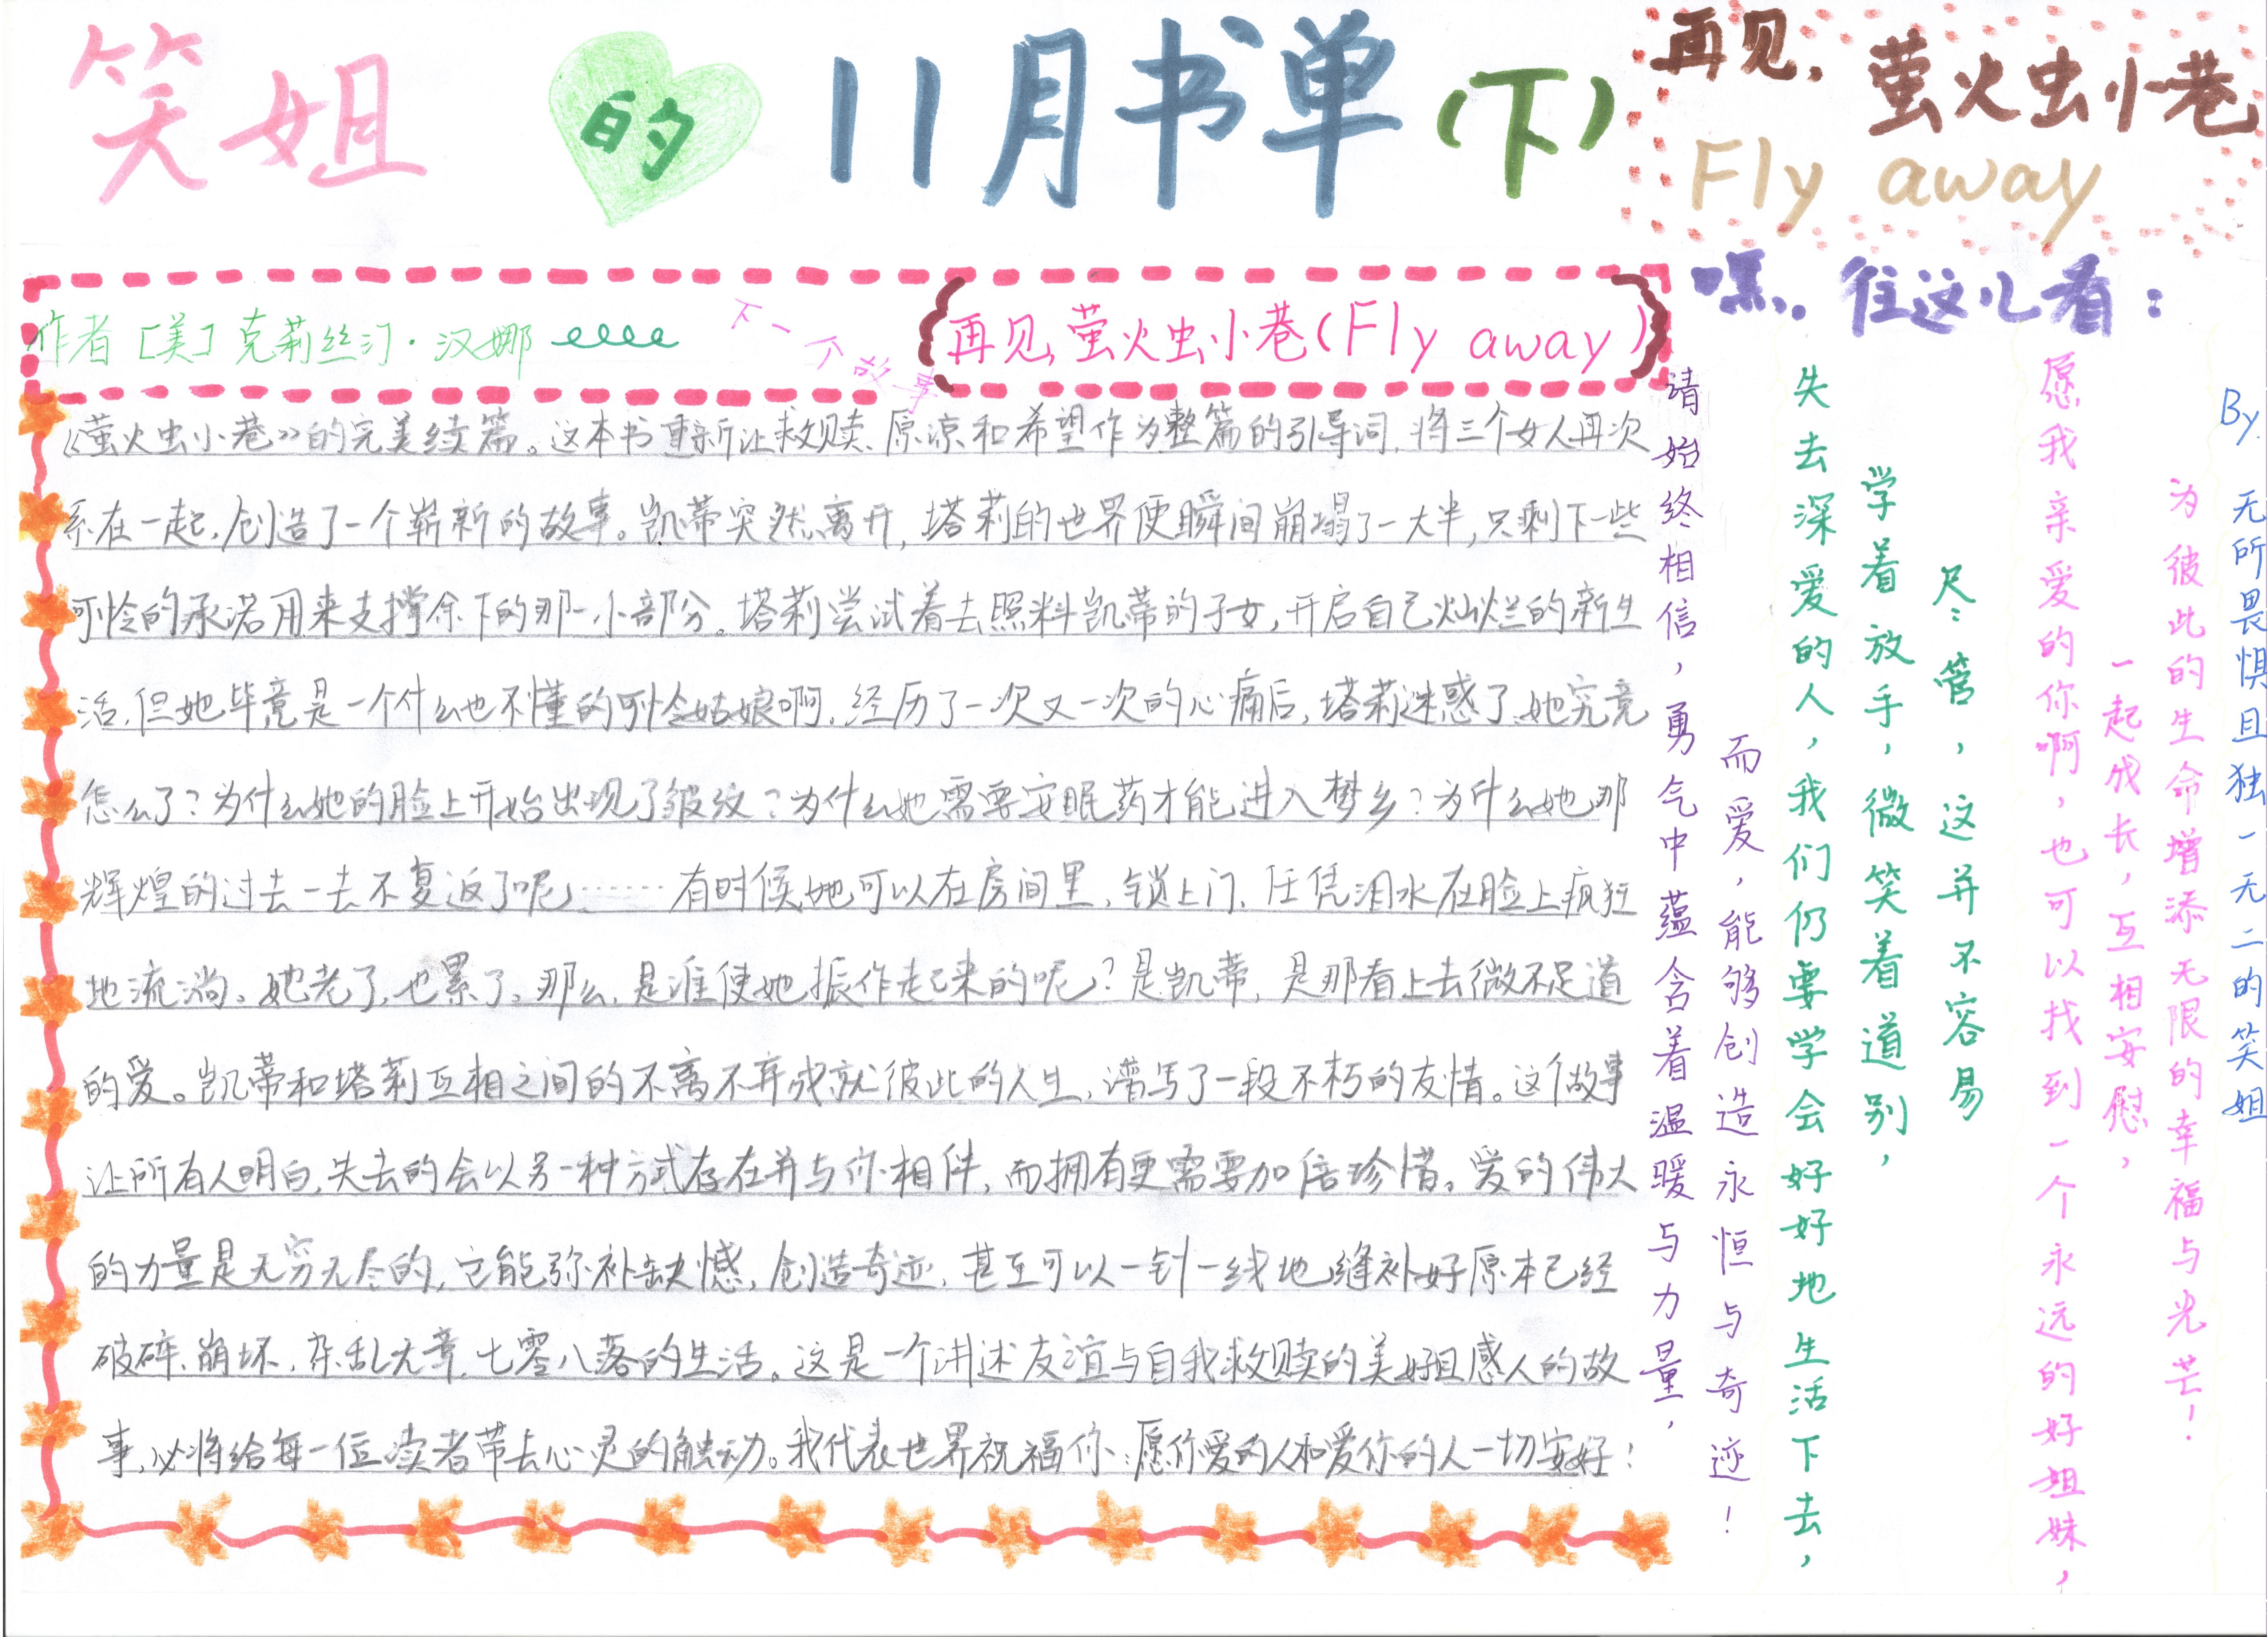 笑姐的11月书单(下)
再见,萤火虫小巷
Fly away
作者[美]克莉丝汀·汉娜
下一个故事
{再见,萤火虫小巷(Fly away)}
《萤火虫小巷》的完美续篇。这本书重新让救赎、原谅和希望作为整篇的引导词,将三个女人再次
系在一起,创造了一个崭新的故事。凯蒂突然离开,塔莉的世界便瞬间崩塌了一大半,只剩下一些
可怜的承诺用来支撑余下的那一小部分。塔莉尝试着去照料凯蒂的子女,开启自己灿烂的新生
活,但她毕竟是一个什么也不懂的可怜姑娘啊,经历了一次又一次的心痛后,塔莉迷惑了,她究竟
怎么了?为什么她的脸上开始出现了皱纹?为什么她需要安眠药才能进入梦乡?为什么她那
辉煌的过去一去不复返了呢……有时候,她可以在房间里,锁上门,任凭泪水在脸上疯狂
地流淌。她老了,也累了。那么,是谁使她振作起来的呢?是凯蒂,是那看上去微不足道
的爱。凯蒂和塔莉互相之间的不离不弃成就彼此的人生,谱写了一段不朽的友情。这个故事
让所有人明白,失去的会以另一种方式存在并与你相伴,而拥有更需要加倍珍惜。爱的伟大
的力量是无穷无尽的,它能弥补缺憾,创造奇迹,甚至可以一针一线地缝补好原本已经
破碎、崩坏,杂乱无章,七零八落的生活。这是一个讲述友谊与自我救赎的美好且感人的故
事,必将给每一位读者带去心灵的触动。我代表世界祝福你:愿你爱的人和爱你的人一切安好!
嘿,往这儿看:
请始终相信,勇气中蕴含着温暖与力量,
而爱,能够创造永恒与奇迹!
失去深爱的人,我们仍要学会好好地生活下去,
学着放手,微笑着道别,
尽管,这并不容易
愿我亲爱的你啊,也可以找到一个永远的好姐妹,
一起成长,互相安慰,
为彼此的生命增添无限的幸福与光芒!
By 无所畏惧且独一无二的笑姐